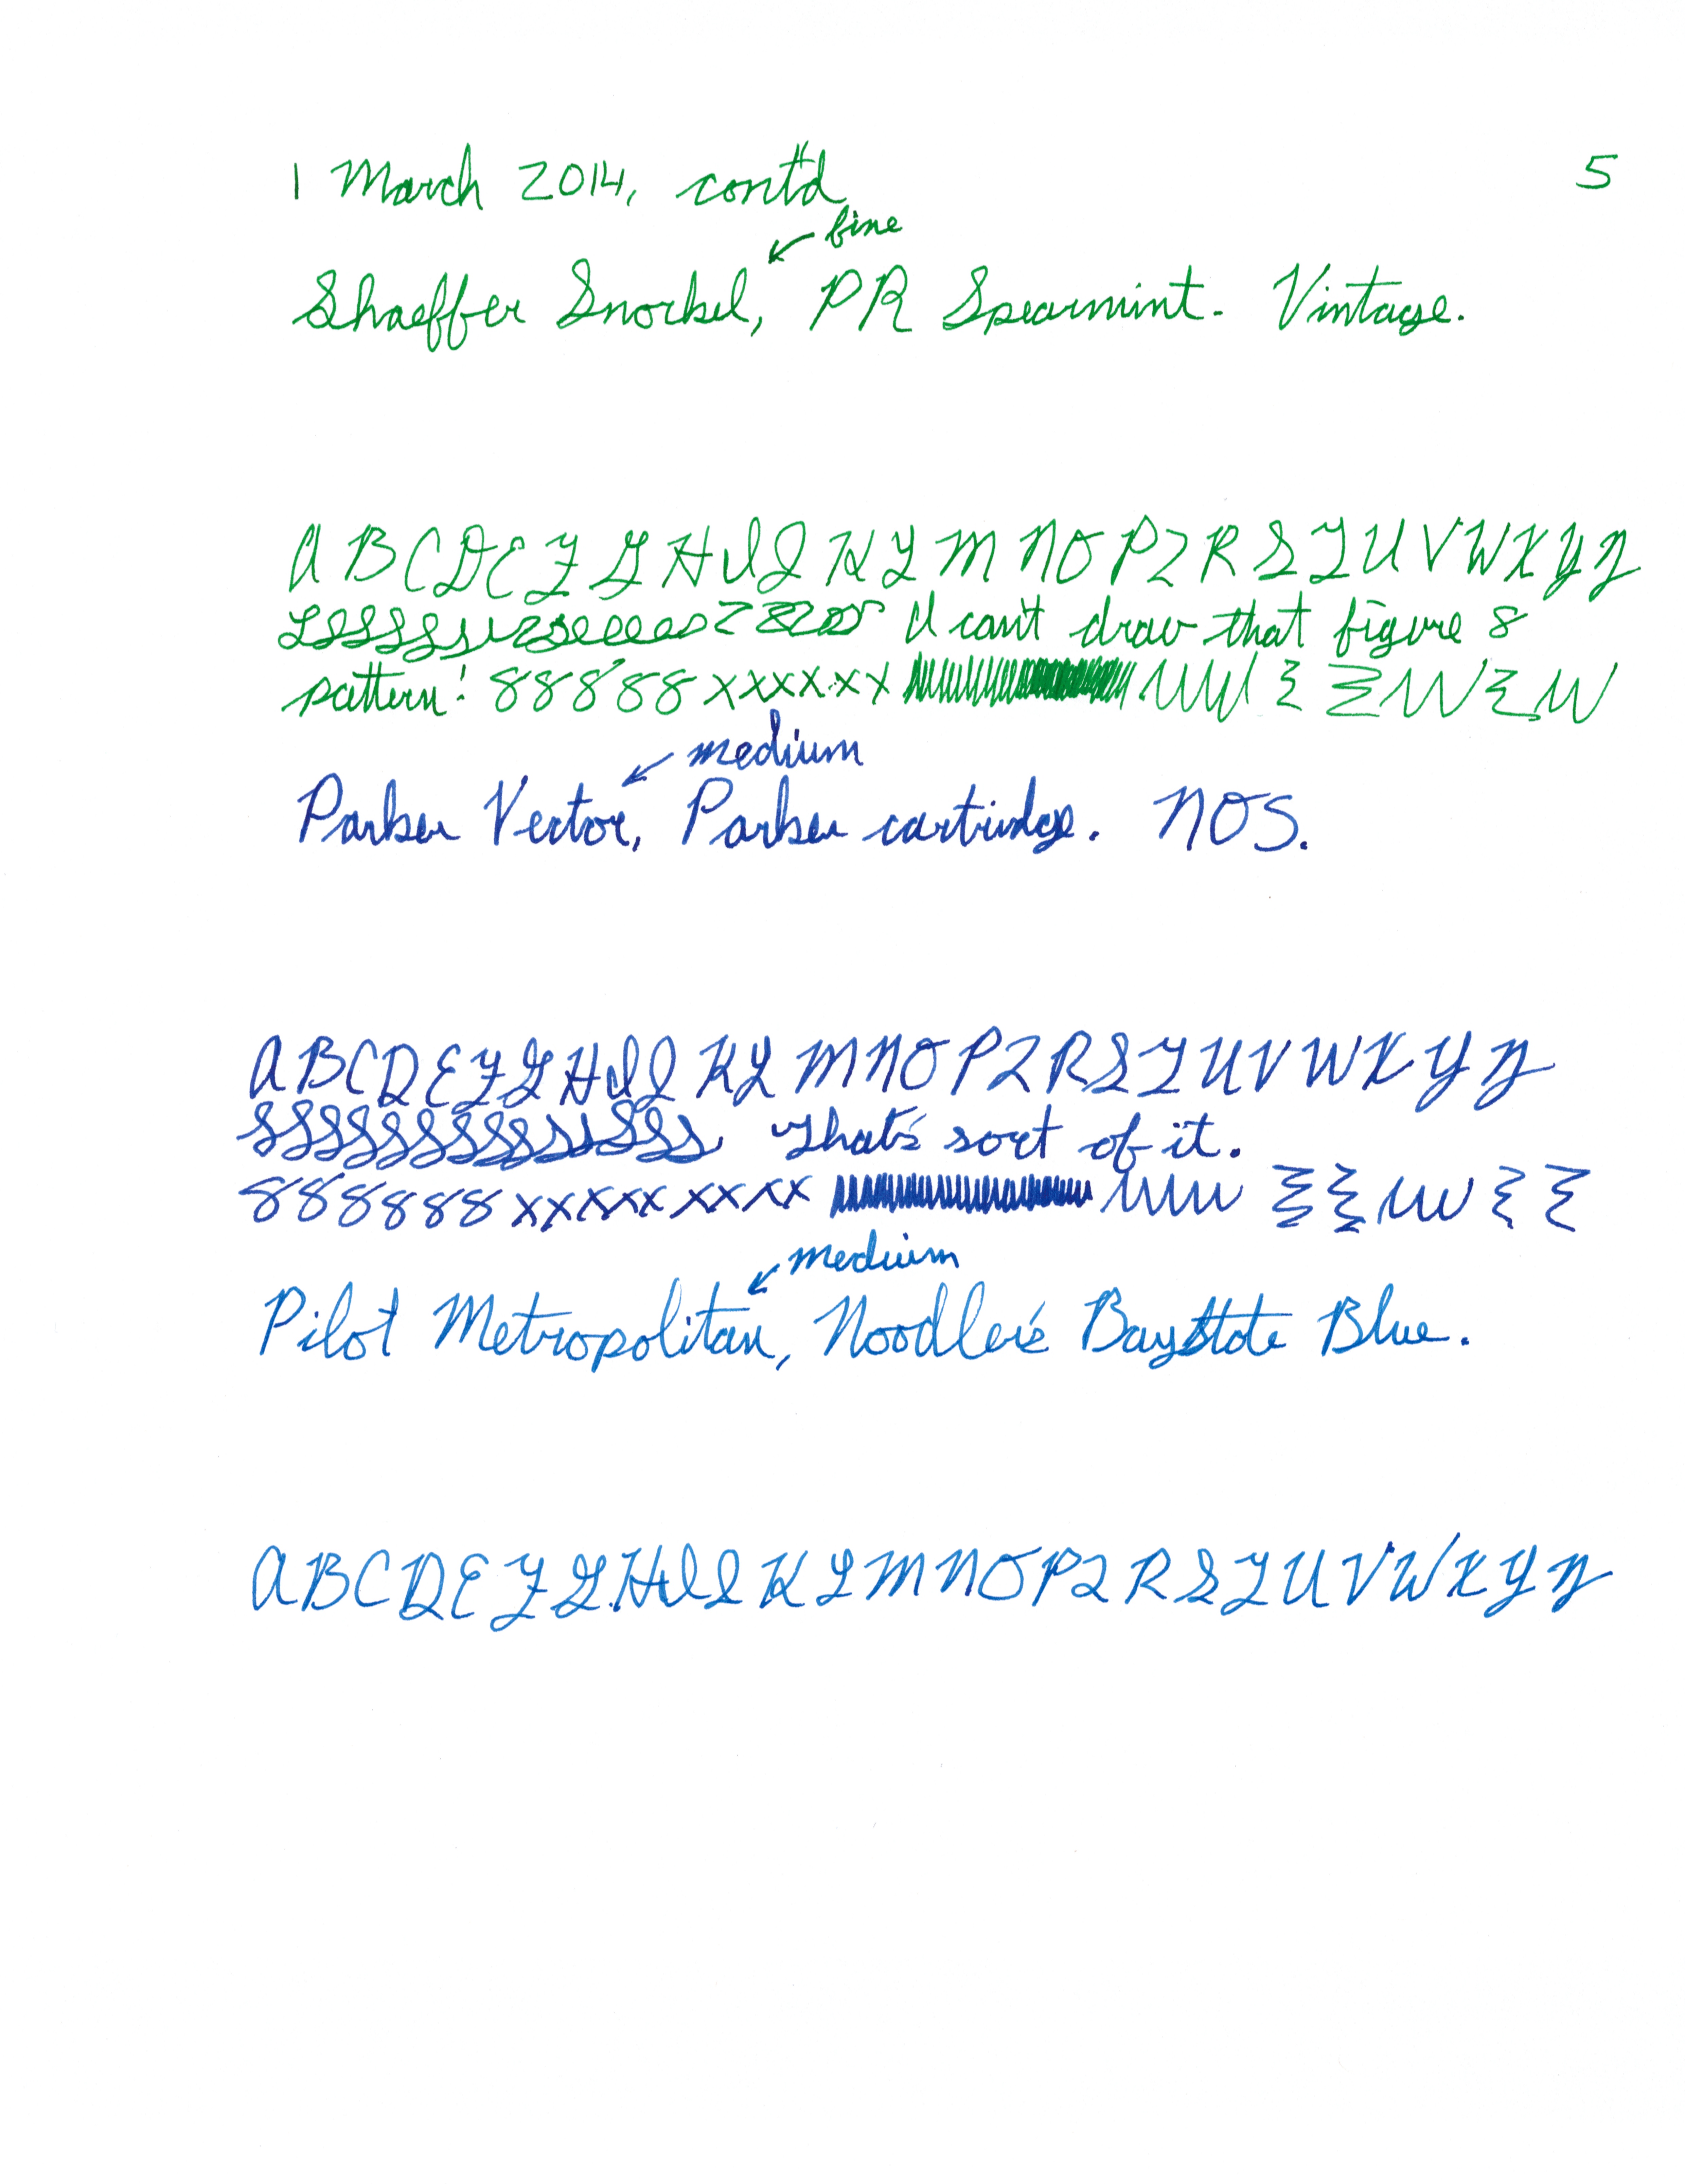 1 March 2014, cont'd 5
fine
Shaeffer Snorkel, PR Spearmint. Vintage.
A B C D E F G H I J K L M N O P Q R S T U V W X Y Z
I can't draw that figure 8
pattern! 8 8 8 8 8 x x x x x x x
medium
Parker Vector, Parker cartridge. NOS.
A B C D E F G H I J K L M N O P Q R S T U V W X Y Z
That's sort of it.
8 8 8 8 8 8 x x x x x x x x x x
medium
Pilot Metropolitan, Noodler's Baystate Blue.
A B C D E F G H I J K L M N O P Q R S T U V W X Y Z